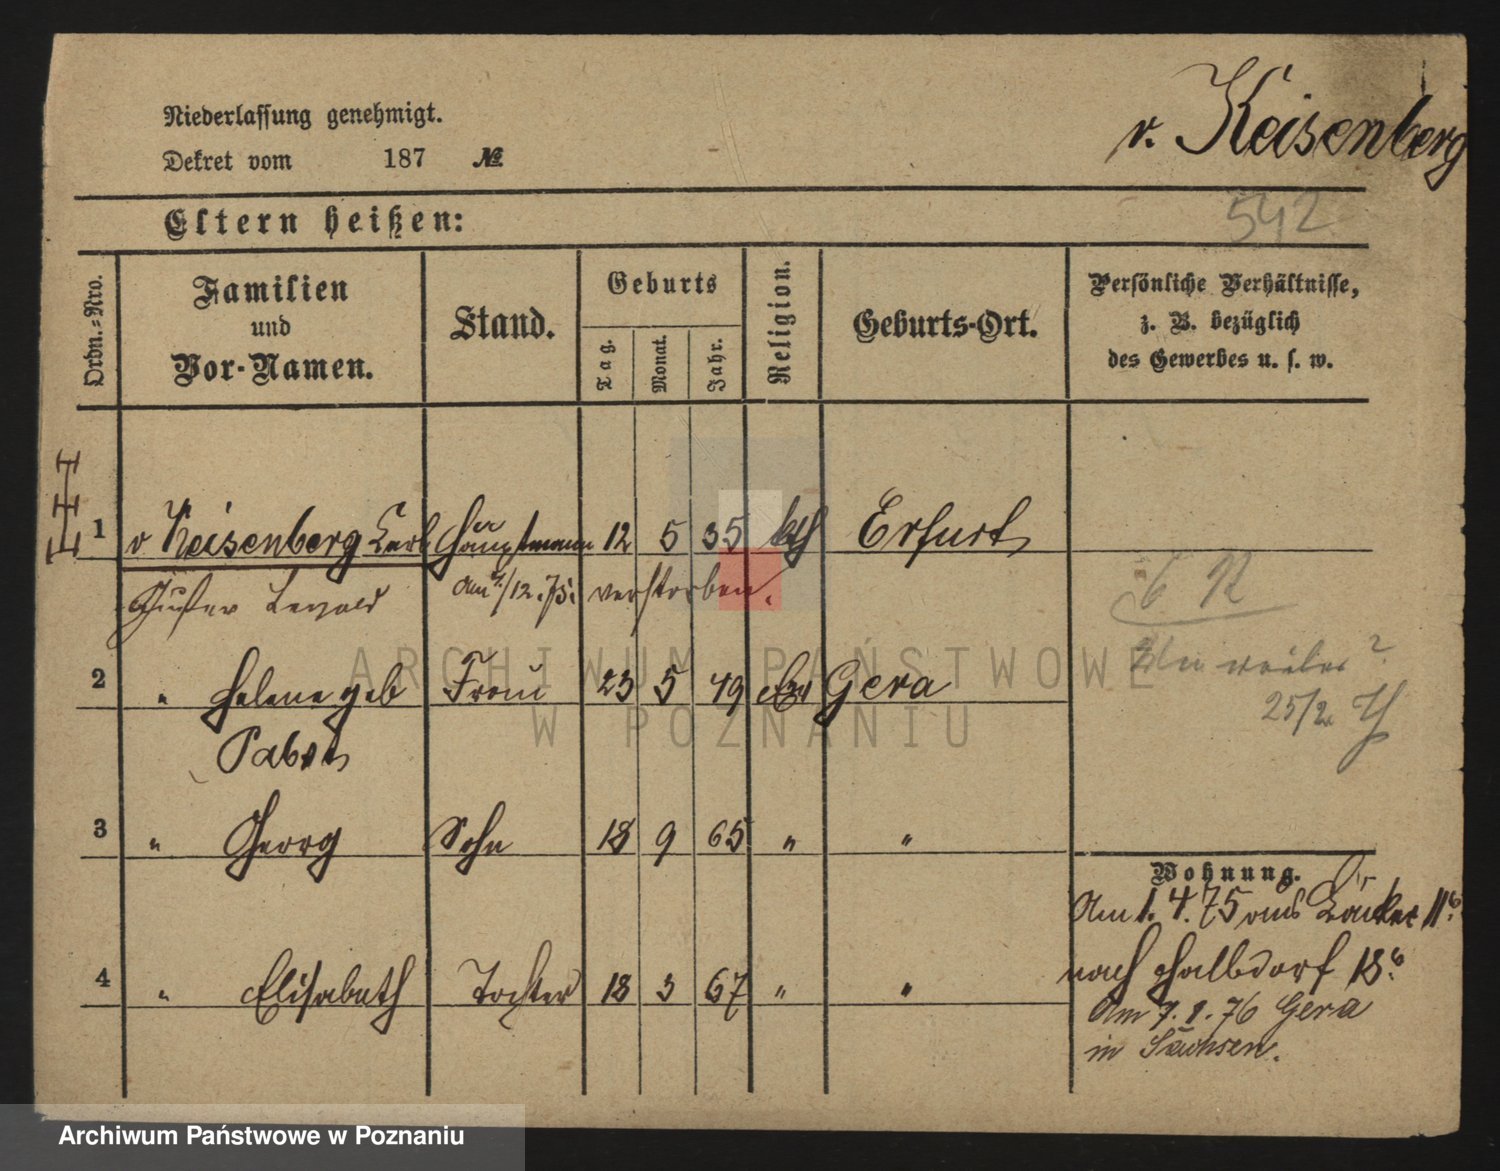 Niederlassung genehmigt.
v. Keisenberg
Dekret vom 187 №
Eltern heißen:
542
Ordn.=Nro.
Familien und Vor-Namen.
Stand.
Geburts
Tag.
Monat.
Jahr.
Religion.
Geburts-Ort.
Persönliche Verhältnisse,
z. B. bezüglich
des Gewerbes u. s. w.
1 v Keisenberg Carl Hauptmann 12 5 35 kth Erfurt
Gustav Leopold Am /12.75. verstorben.
2 " Helene geb Frau 23 5 49 Gera
Pabst
25/2
3 " Georg Sohn 18 9 65 " "
Wohnung.
Am 1.4.75 aus 11
4 " Elisabeth Tochter 18 3 67 " "
nach Halbdorf 18
Am 7.1.76 Gera
in Sachsen.
ARCHIWUM PAŃSTWOWE
W POZNANIU
Archiwum Państwowe w Poznaniu